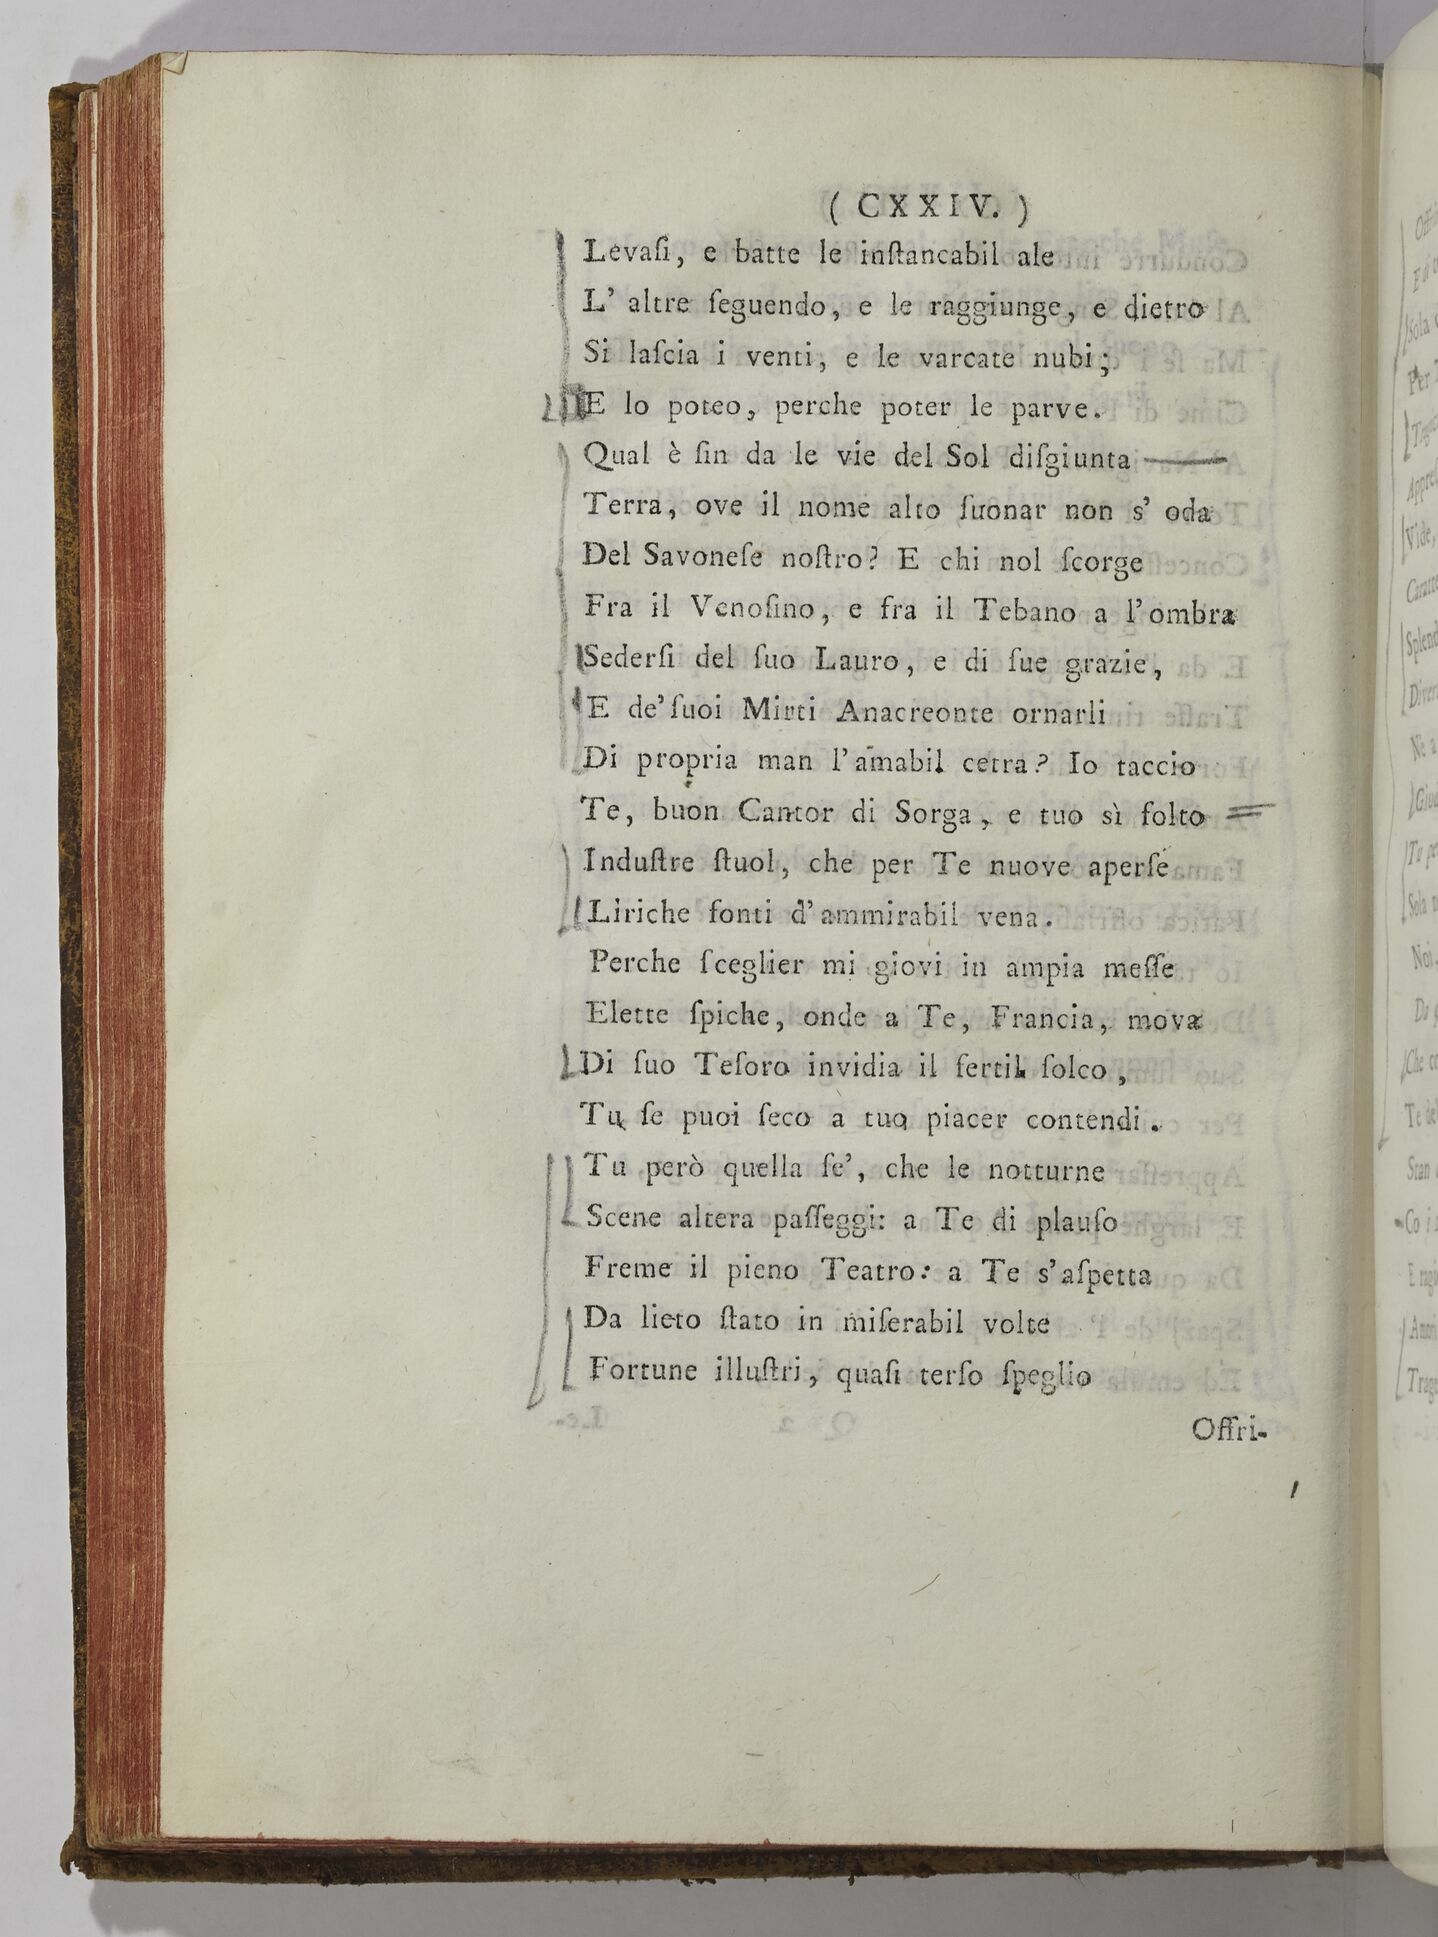 ( CXXIV. )
Levaſi, e batte le inſtancabil ale
L' altre ſeguendo, e le raggiunge, e dietro
Si laſcia i venti, e le varcate nubi;
E lo poteo, perche poter le parve.
Qual è ſin da le vie del Sol diſgiunta
Terra, ove il nome alto ſuonar non s' oda
Del Savoneſe noſtro? E chi nol ſcorge
Fra il Venoſino, e fra il Tebano a l'ombra
Sederſi del ſuo Lauro, e di ſue grazie,
E de'ſuoi Mirti Anacreonte ornarli
Di propria man l'amabil cetra? Io taccio
Te, buon Cantor di Sorga, e tuo sì folto
Induſtre ſtuol, che per Te nuove aperſe
Liriche fonti d'ammirabil vena.
Perche ſceglier mi giovi in ampia meſſe
Elette ſpiche, onde a Te, Francia, mova
Di ſuo Teſoro invidia il fertil ſolco,
Tu ſe puoi ſeco a tuo piacer contendi.
Tu però quella ſe', che le notturne
Scene altera paſſeggi: a Te di plauſo
Freme il pieno Teatro: a Te s'aſpetta
Da lieto ſtato in miſerabil volte
Fortune illuſtri, quaſi terſo ſpeglio
Offri-